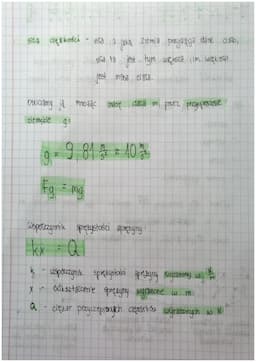 siła ciężkości - siła z jaką Ziemia przyciąga dane ciało,
siła ta jest tym większa im większa
jest masa ciała.
Obliczamy ją mnożąc masę ciała m przez przyspieszenie
ziemskie g:
g = 9,81 m/s² ≈ 10 m/s²
Fg = mg
Współczynnik sprężystości sprężyny:
kx = Q
k - współczynnik sprężystości sprężyny wyrażony w N/m
x - odkształcenie sprężyny wyrażone w m
Q - ciężar przyczepionych ciężarków wyrażonych w N